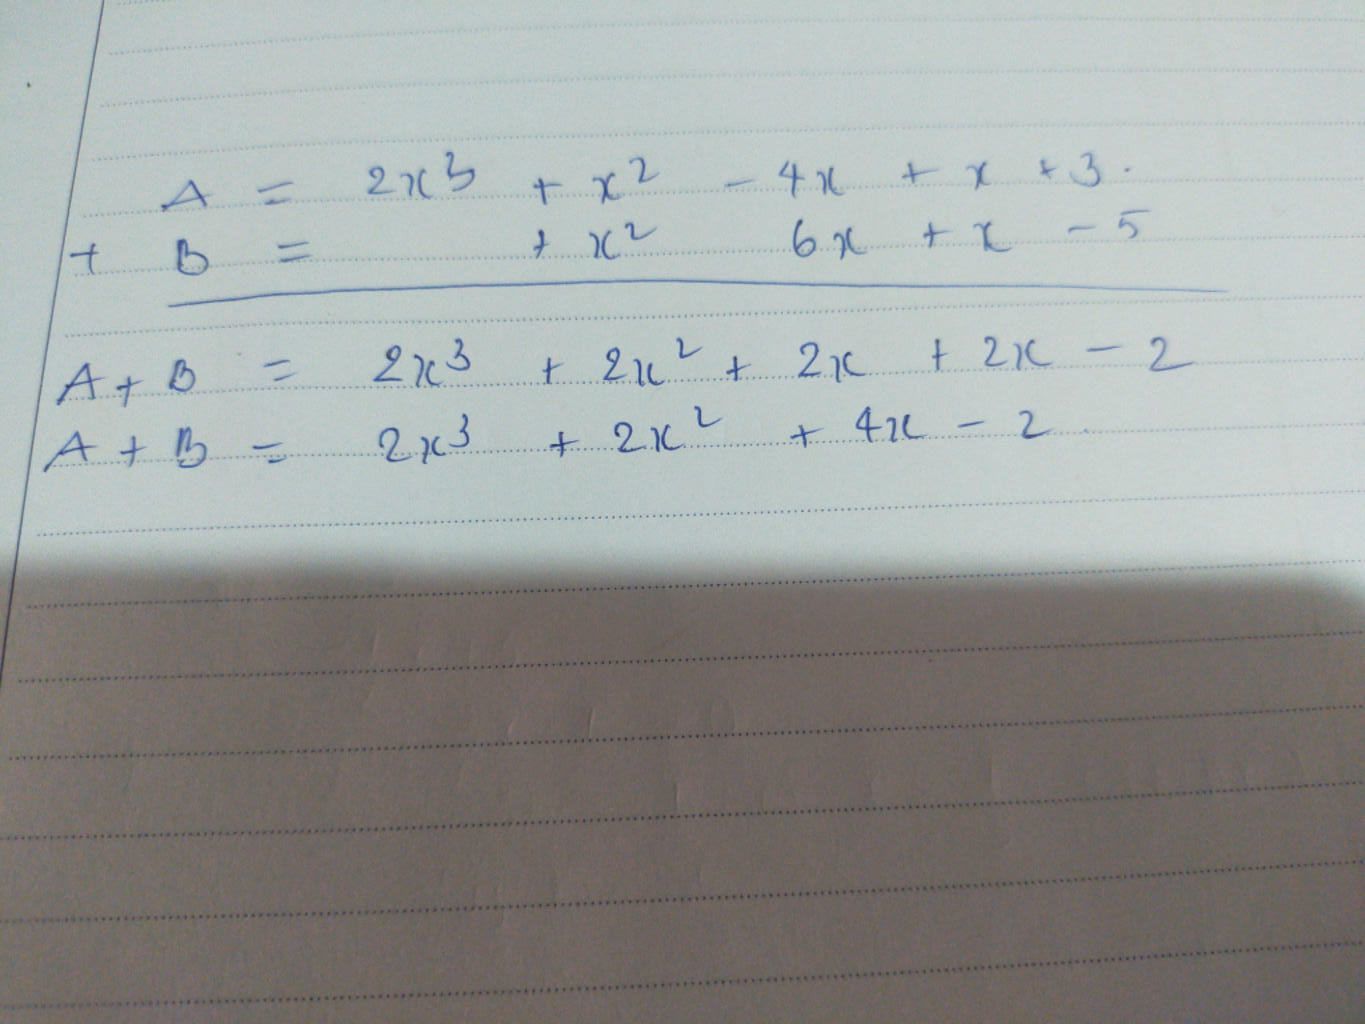 A = 2x³ + x² - 4x + x + 3.
+ B = + x² 6x + x - 5
A + B = 2x³ + 2x² + 2x + 2x - 2
A + B = 2x³ + 2x² + 4x - 2